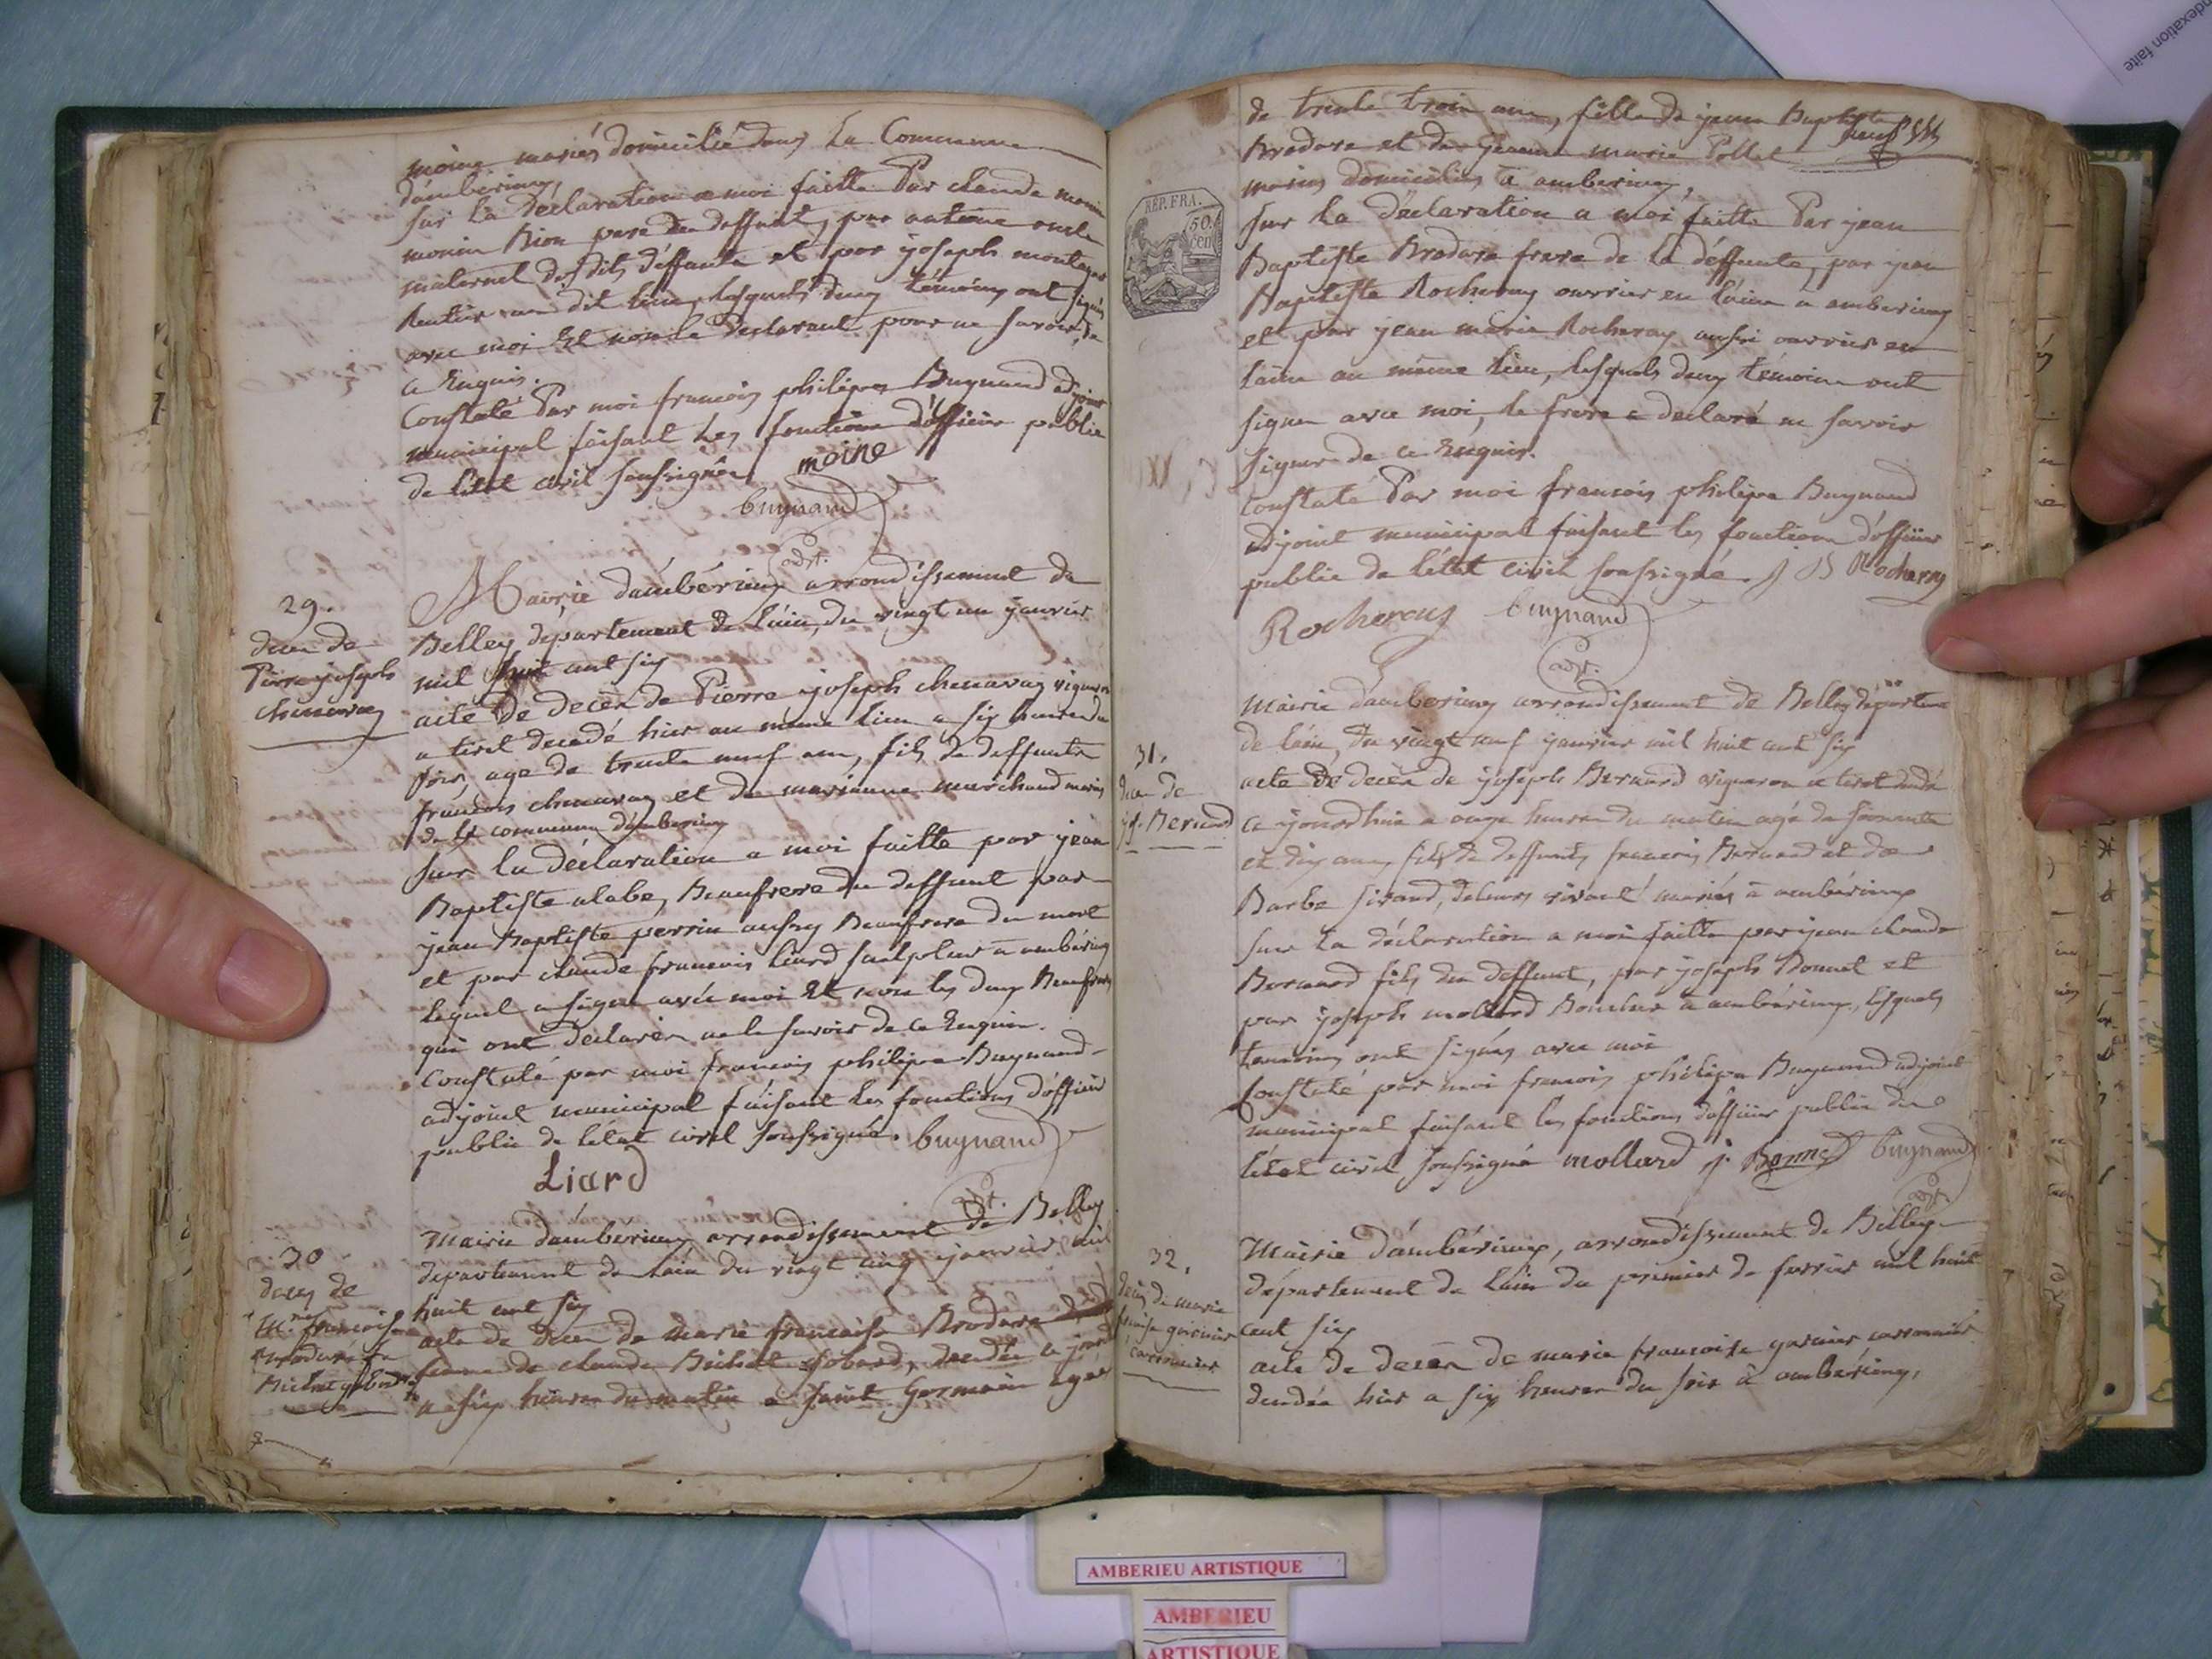 moine mariés domicilié dans La Commune
d'ambérieux
sur La Déclaration a moi faitte Par claude
monin Bion pere du deffunt, par antoine oncle
maternel desdits deffunts et par joseph montagne
Rentier au dit lieu, lesquels deux témoins ont signés
avec moi Et non le Declarant pour ne savoir, de
ce Enquis.
Constaté Par moi francois philipes Bugnand adjoint
municipal faisant Les fonctions d'officier public
de l'état civil soussigné moine
bugnand
adjt.
29.
deces de
Pierre joseph
chenavay
Mairie d'ambérieux arrondissement de
Belley département de l'ain, du vingt un janvier
mil huit cent six
acte de decés de Pierre joseph chenavay vigneron
a tiret decedé hier au meme lieu a six heures du
soir, age de trente neuf ans, fils de deffunts
francois chenavay et de marianne marchand mariés
de la commune d'ambérieux
sur la déclaration a moi faitte par jean
Baptiste alabe, Beaufrere du deffunt par
jean Baptiste perrin aussy Beaufrere du mort
et par claude francois Liard sculpteur a ambérieux
lequel a signé avéc moi Et non les deux Beaufreres
qui ont declarés ne le savoir de ce Enquis.
Constaté par moi francois philipe Bugnand
adjoint municipal faisant les fonctions d'officier
public de l'état civil soussigné. bugnand
Liard
adjt.
30
deces de
M.rie francoise
Brodare fe
Michel gobard
Mairie d'amberieux arrondissement de Belley
departement de l'ain du vingt cinq janvier mil
huit cent six
acte de decés de marie francoise Brodare
femme de claude Michel gobard, decedée ce jour
a six heures du matin a saint Germain agée
de trente trois ans, fille de jean Baptiste
Brodare et de jeanne marie Pollet
mariés domiciliés a amberieux,
REP. FRA.
50.
cen
sur la Déclaration a moi faitte Par jean
Baptiste Brodare frere de la déffunte, par jean
Baptiste Rocheray ouvrier en laine a amberieux
et par jean marie Rocheray aussi ouvrier en
laine au même lieu, lesquels deux témoins ont
signer avec moi, le frere a declaré ne savoir
signer de ce Enquis.
Constaté Par moi francois philipe Bugnand
adjoint municipal faisant les fonctions d'officier
public de l'état civil soussigné. J B Rocheray
Rocheray bugnand
adjt.
31.
deces de
jh. Bernard
Mairie d'amberieux arrondissement de Belley départeme
de l'ain, du vingt neuf janvier mil huit cent six
acte de decés de joseph Bernard vigneron a tiret decedé
ce jourdhui a onze heures du matin agé de soixante
et dix ans, fils de deffunts francois Bernard et de
Barbe sirand, de leurs vivant mariés a ambérieux
sur La déclaration a moi faitte par jean claude
Bernard fils du deffunt, par joseph Bonnet et
par joseph mollard Boucher a ambérieux, lesquels
temoins ont signés avec moi
Constaté par moi francois philipe Bugnand adjoint
municipal faisant les fonctions d'officier public de
létat civil soussigné mollard j. Bonnet bugnand
adjt.
32.
deces de marie
francoise
Mairie d'ambérieux, arrondissement de Belley
département de L'ain du premier de fevrier mil huit
cent six
acte de decés de marie francoise
decedée hier a six heures du soir a ambérieux,
indexation faite
AMBERIEU ARTISTIQUE
AMBERIEU
ARTISTIQUE